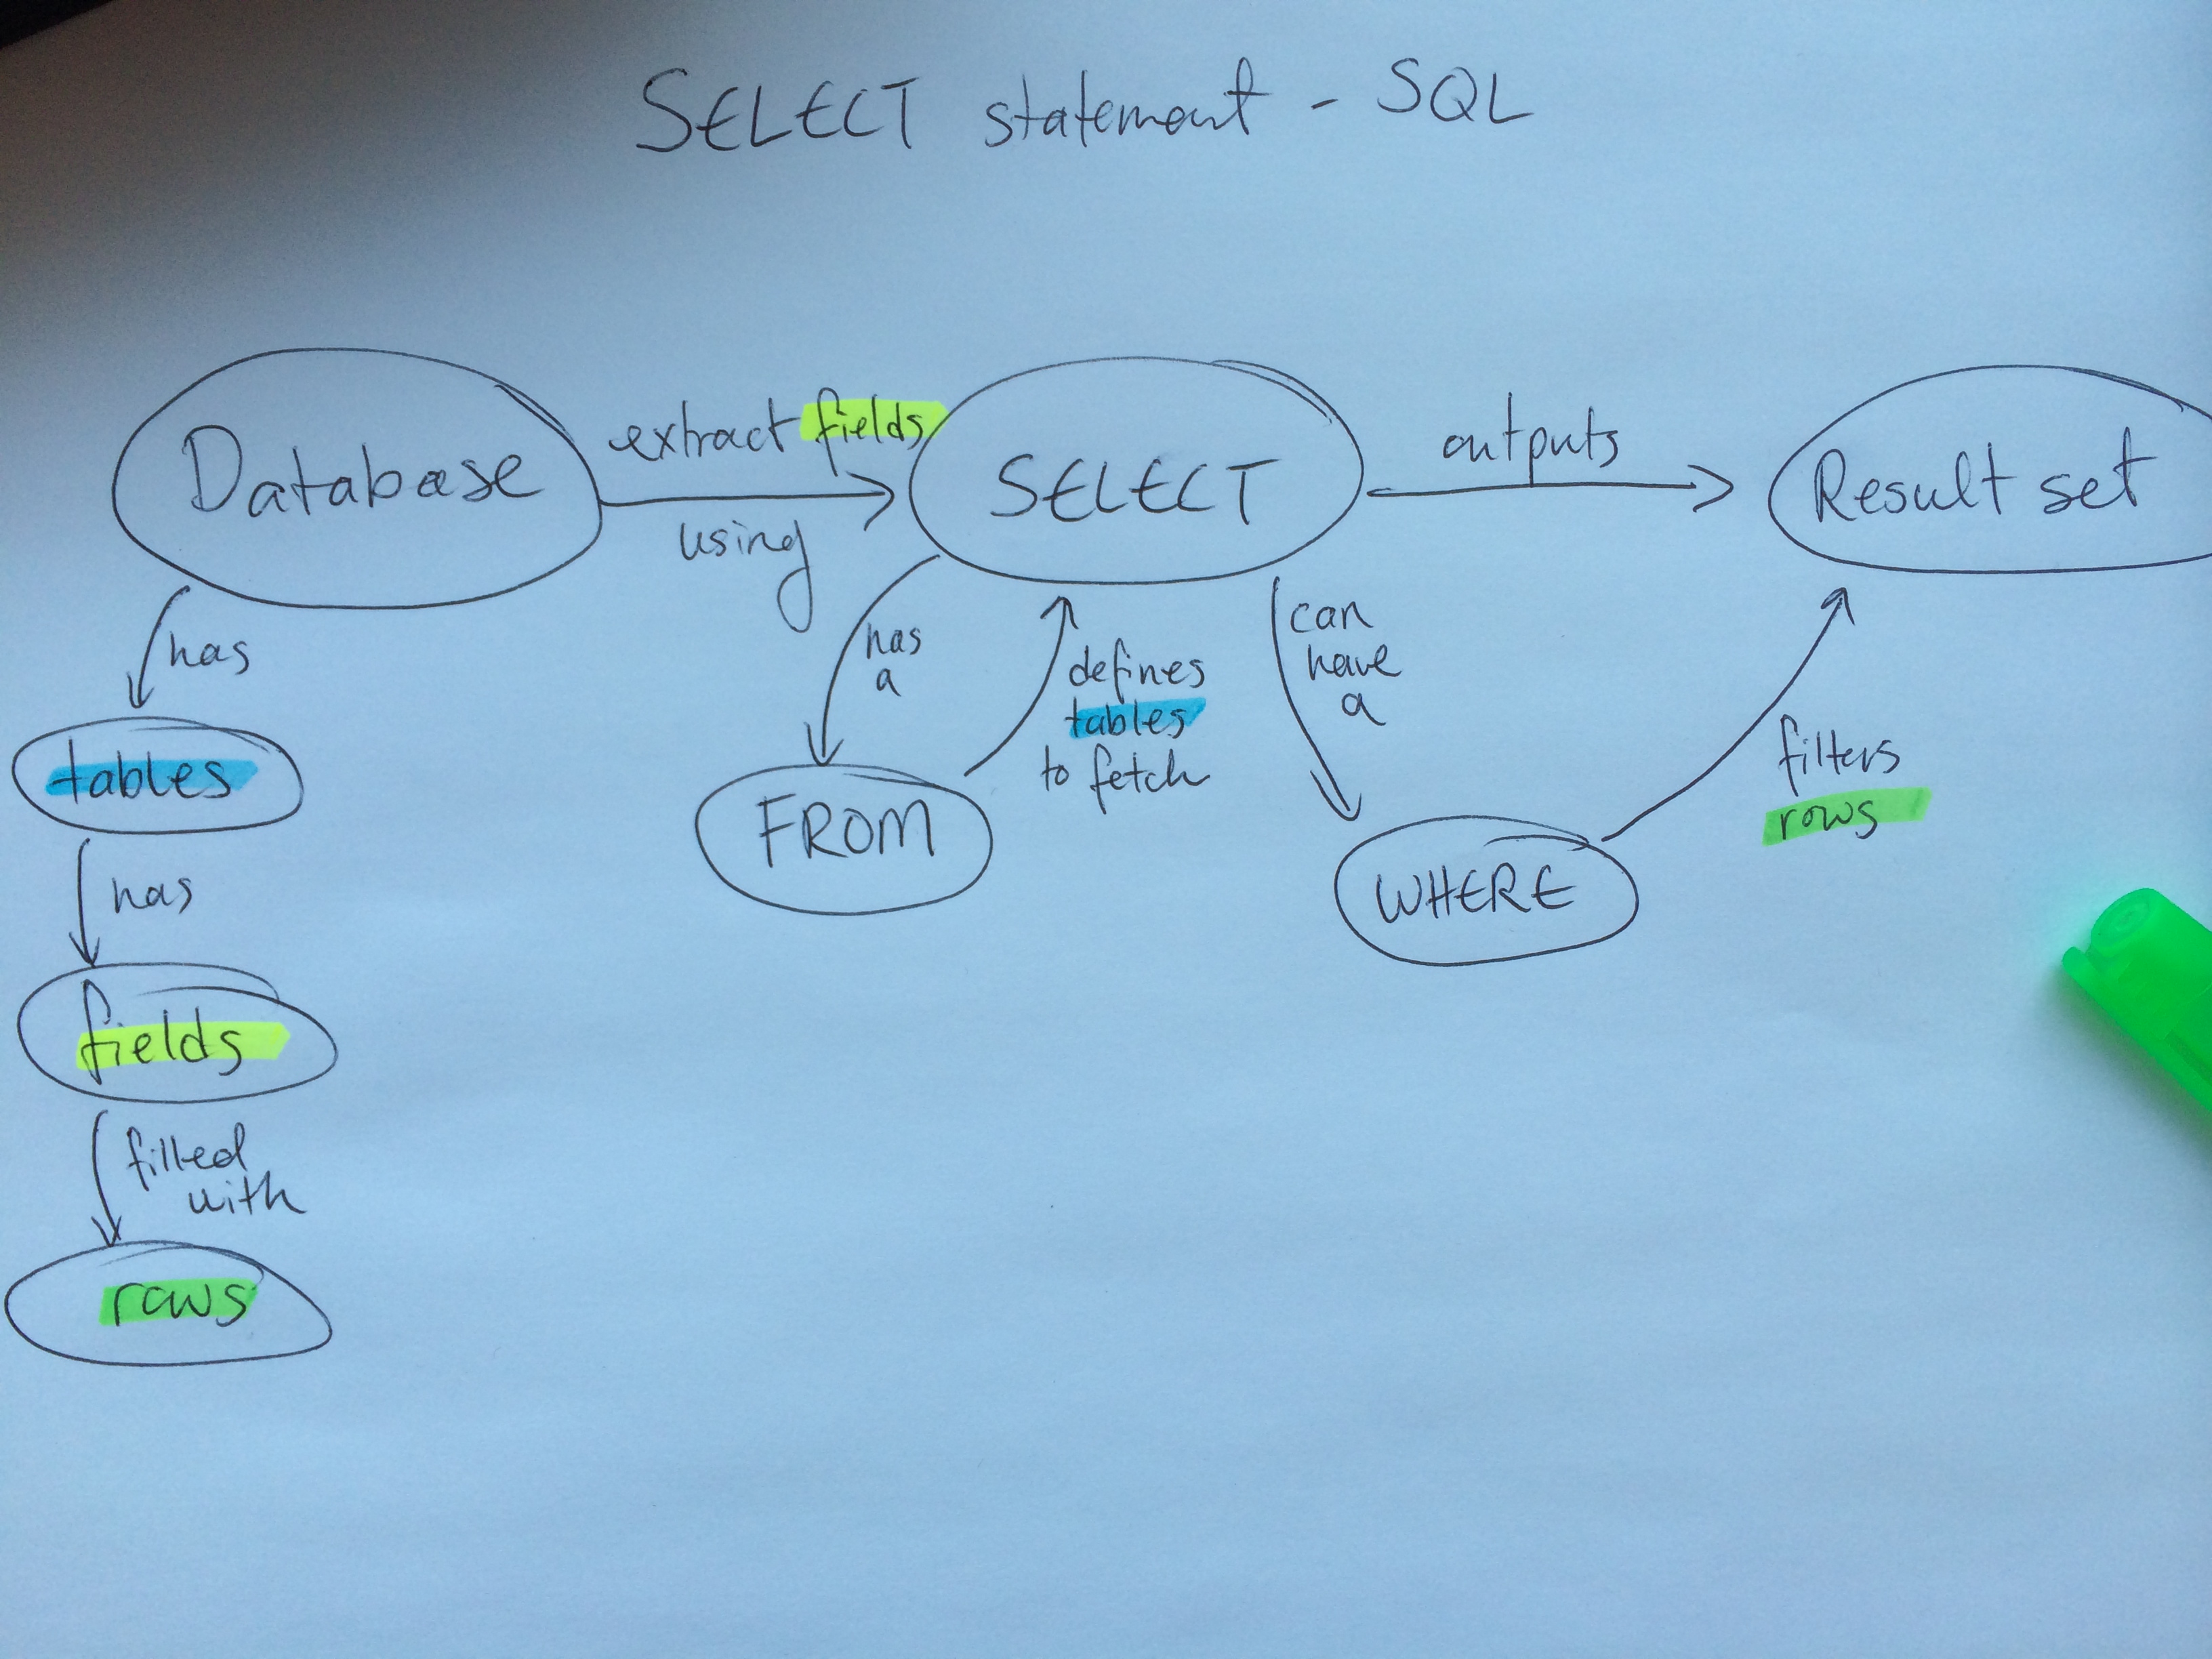 SELECT statement - SQL
Database
extract fields
using
SELECT
outputs
Result set
has
tables
has
fields
filled
with
rows
has
a
FROM
defines
tables
to fetch
can
have
a
WHERE
filters
rows